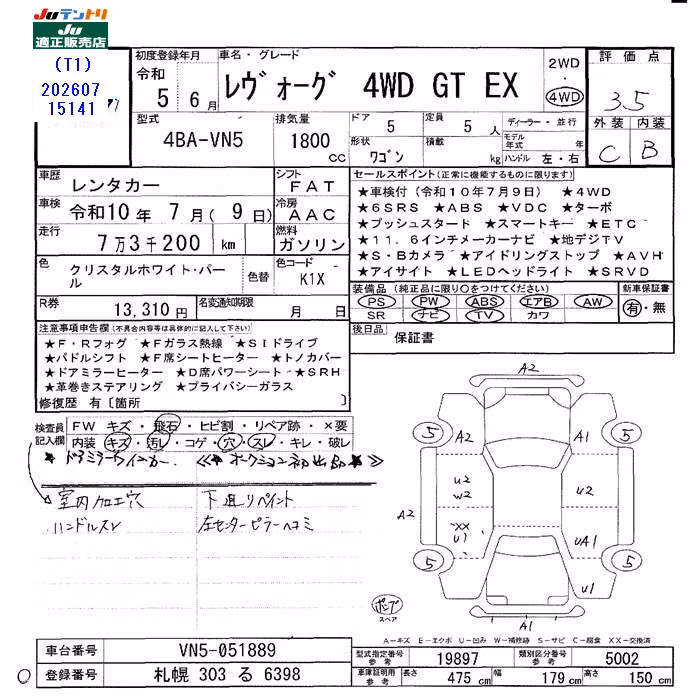 JUテントリ
JU
適正販売店
(T1)
202607
15141
初度登録年月
令和
5 6月
車名・グレード
レヴォーグ 4WD GT EX
2WD
・
4WD
評価点
3.5
外装 内装
C B
型式
4BA-VN5
排気量
1800
cc
ドア
5
形状
ワゴン
定員
5 人
積載
kg
ディーラー・並行
モデル
年式 年
ハンドル 左・右
車歴
レンタカー
シフト
FAT
車検
令和10年 7月( 9日)
冷房
AAC
走行
7万3千200 km
燃料
ガソリン
色
クリスタルホワイト・パール
色替
色コード
K1X
R券
13,310円
名変通知期限
月 日
セールスポイント(正常に機能するものに限ります)
★車検付(令和10年7月9日) ★4WD
★6SRS ★ABS ★VDC ★ターボ
★プッシュスタート ★スマートキー ★ETC
★11.6インチメーカーナビ ★地デジTV
★S・Bカメラ ★アイドリングストップ ★AVH
★アイサイト ★LEDヘッドライト ★SRVD
装備品(純正品に限り○をつけてください)
PS PW ABS エアB AW
SR ナビ TV カワ
新車保証書
有・無
後日品
保証書
注意事項申告欄(不具合内容等は具体的に記入して下さい)
★F・Rフォグ ★Fガラス熱線 ★SIドライブ
★パドルシフト ★F席シートヒーター ★トノカバー
★ドアミラーヒーター ★D席パワーシート ★SRH
★革巻きステアリング ★プライバシーガラス
修復歴 有〔箇所 〕
検査員
記入欄
FW キズ・飛石・ヒビ割・リペア跡・×要
内装 キズ・汚レ・コゲ・穴・スレ・キレ・破レ
★ドアミラーウインカー. ≪★オークション初出品★≫
室内加工穴 下廻りペイント
ハンドルスレ 左センターピラーヘコミ
A2
5 5
A2 A1
U2
W2
U2
A2
XX
U1
UA1
5 5
U1
A1
ポンプ
スペア
A-キズ E-エクボ U-凹み W-補修跡 S-サビ C-腐食 XX-交換済
車台番号
VN5-051889
登録番号
札幌 303 る 6398
型式指定番号
参考
19897
類別区分番号
参考
5002
車庫証明用
参考
長さ 475 cm 幅 179 cm 高さ 150 cm